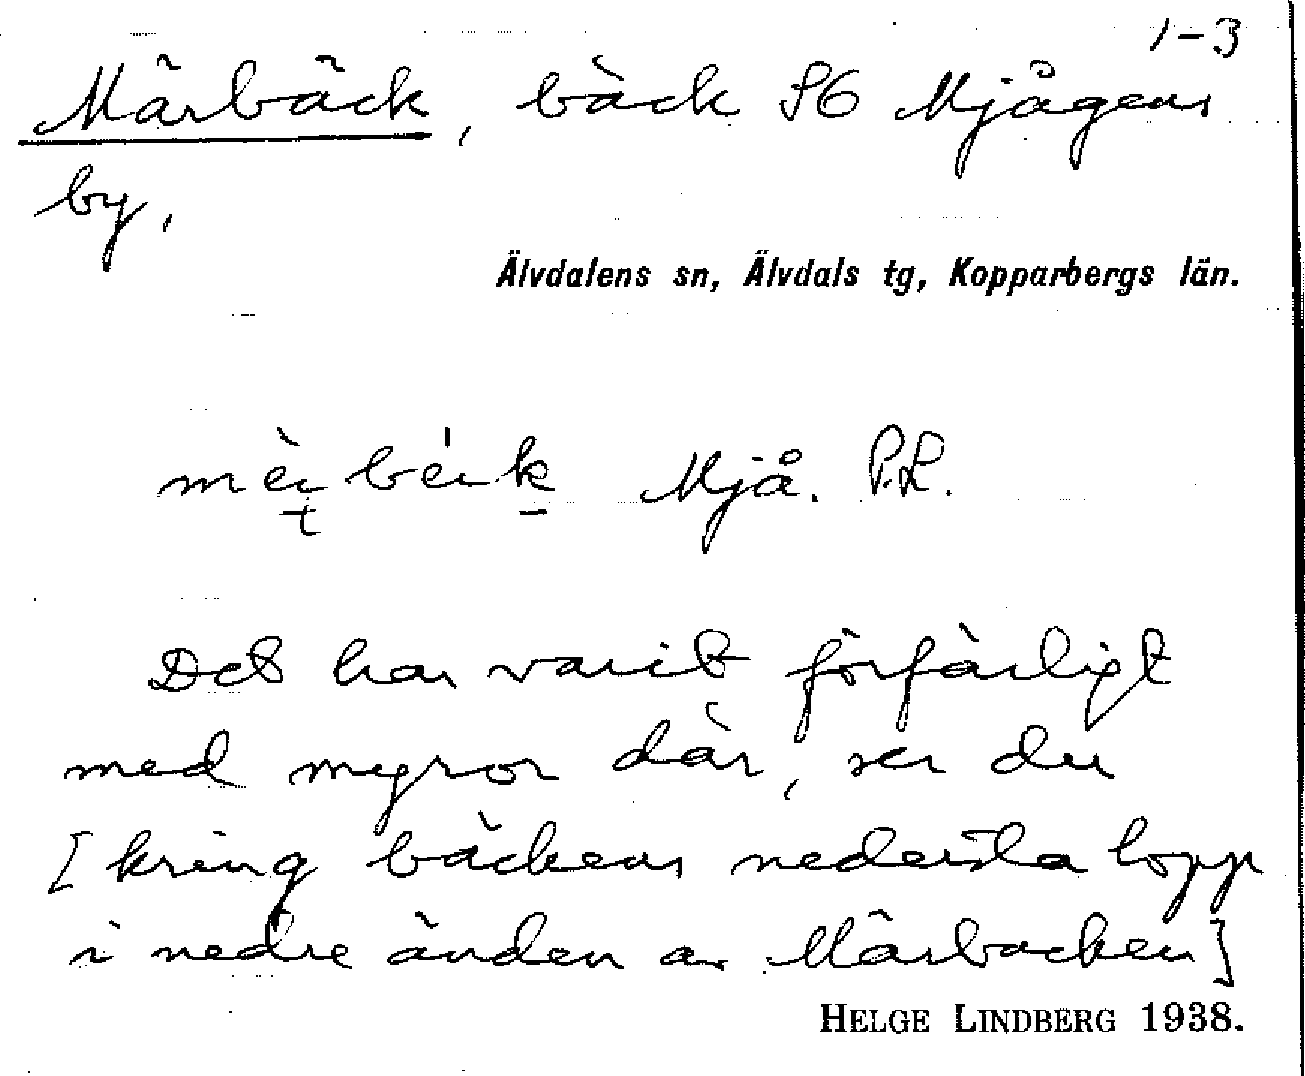 1-3
Märbäck, bäck SO Mjågens
by,
Älvdalens sn, Älvdals tg, Kopparbergs län.
Mjå. P.L.
Det har varit förfärligt
med myror där, ser du
[kring bäckens nedersta lopp
i nedre änden av Märbacken]
HELGE LINDBERG 1938.